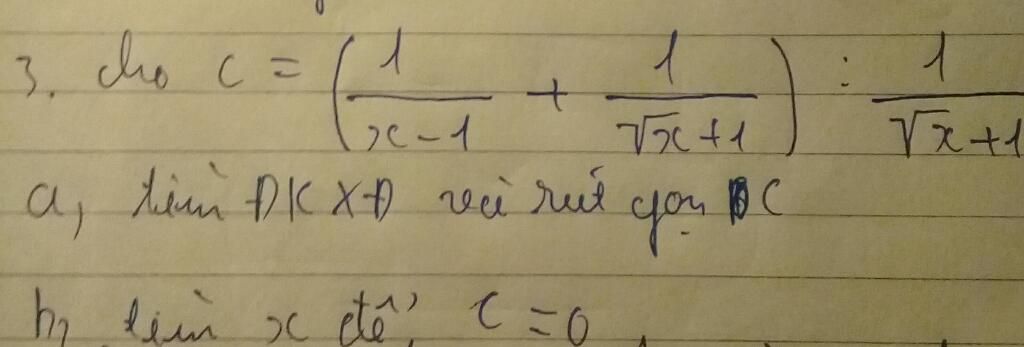 3. cho C = (1/(x-1) + 1/(√x+1)) : 1/(√x+1)
a, tìm ĐKXĐ và rút gọn C
b, tìm x để C = 0